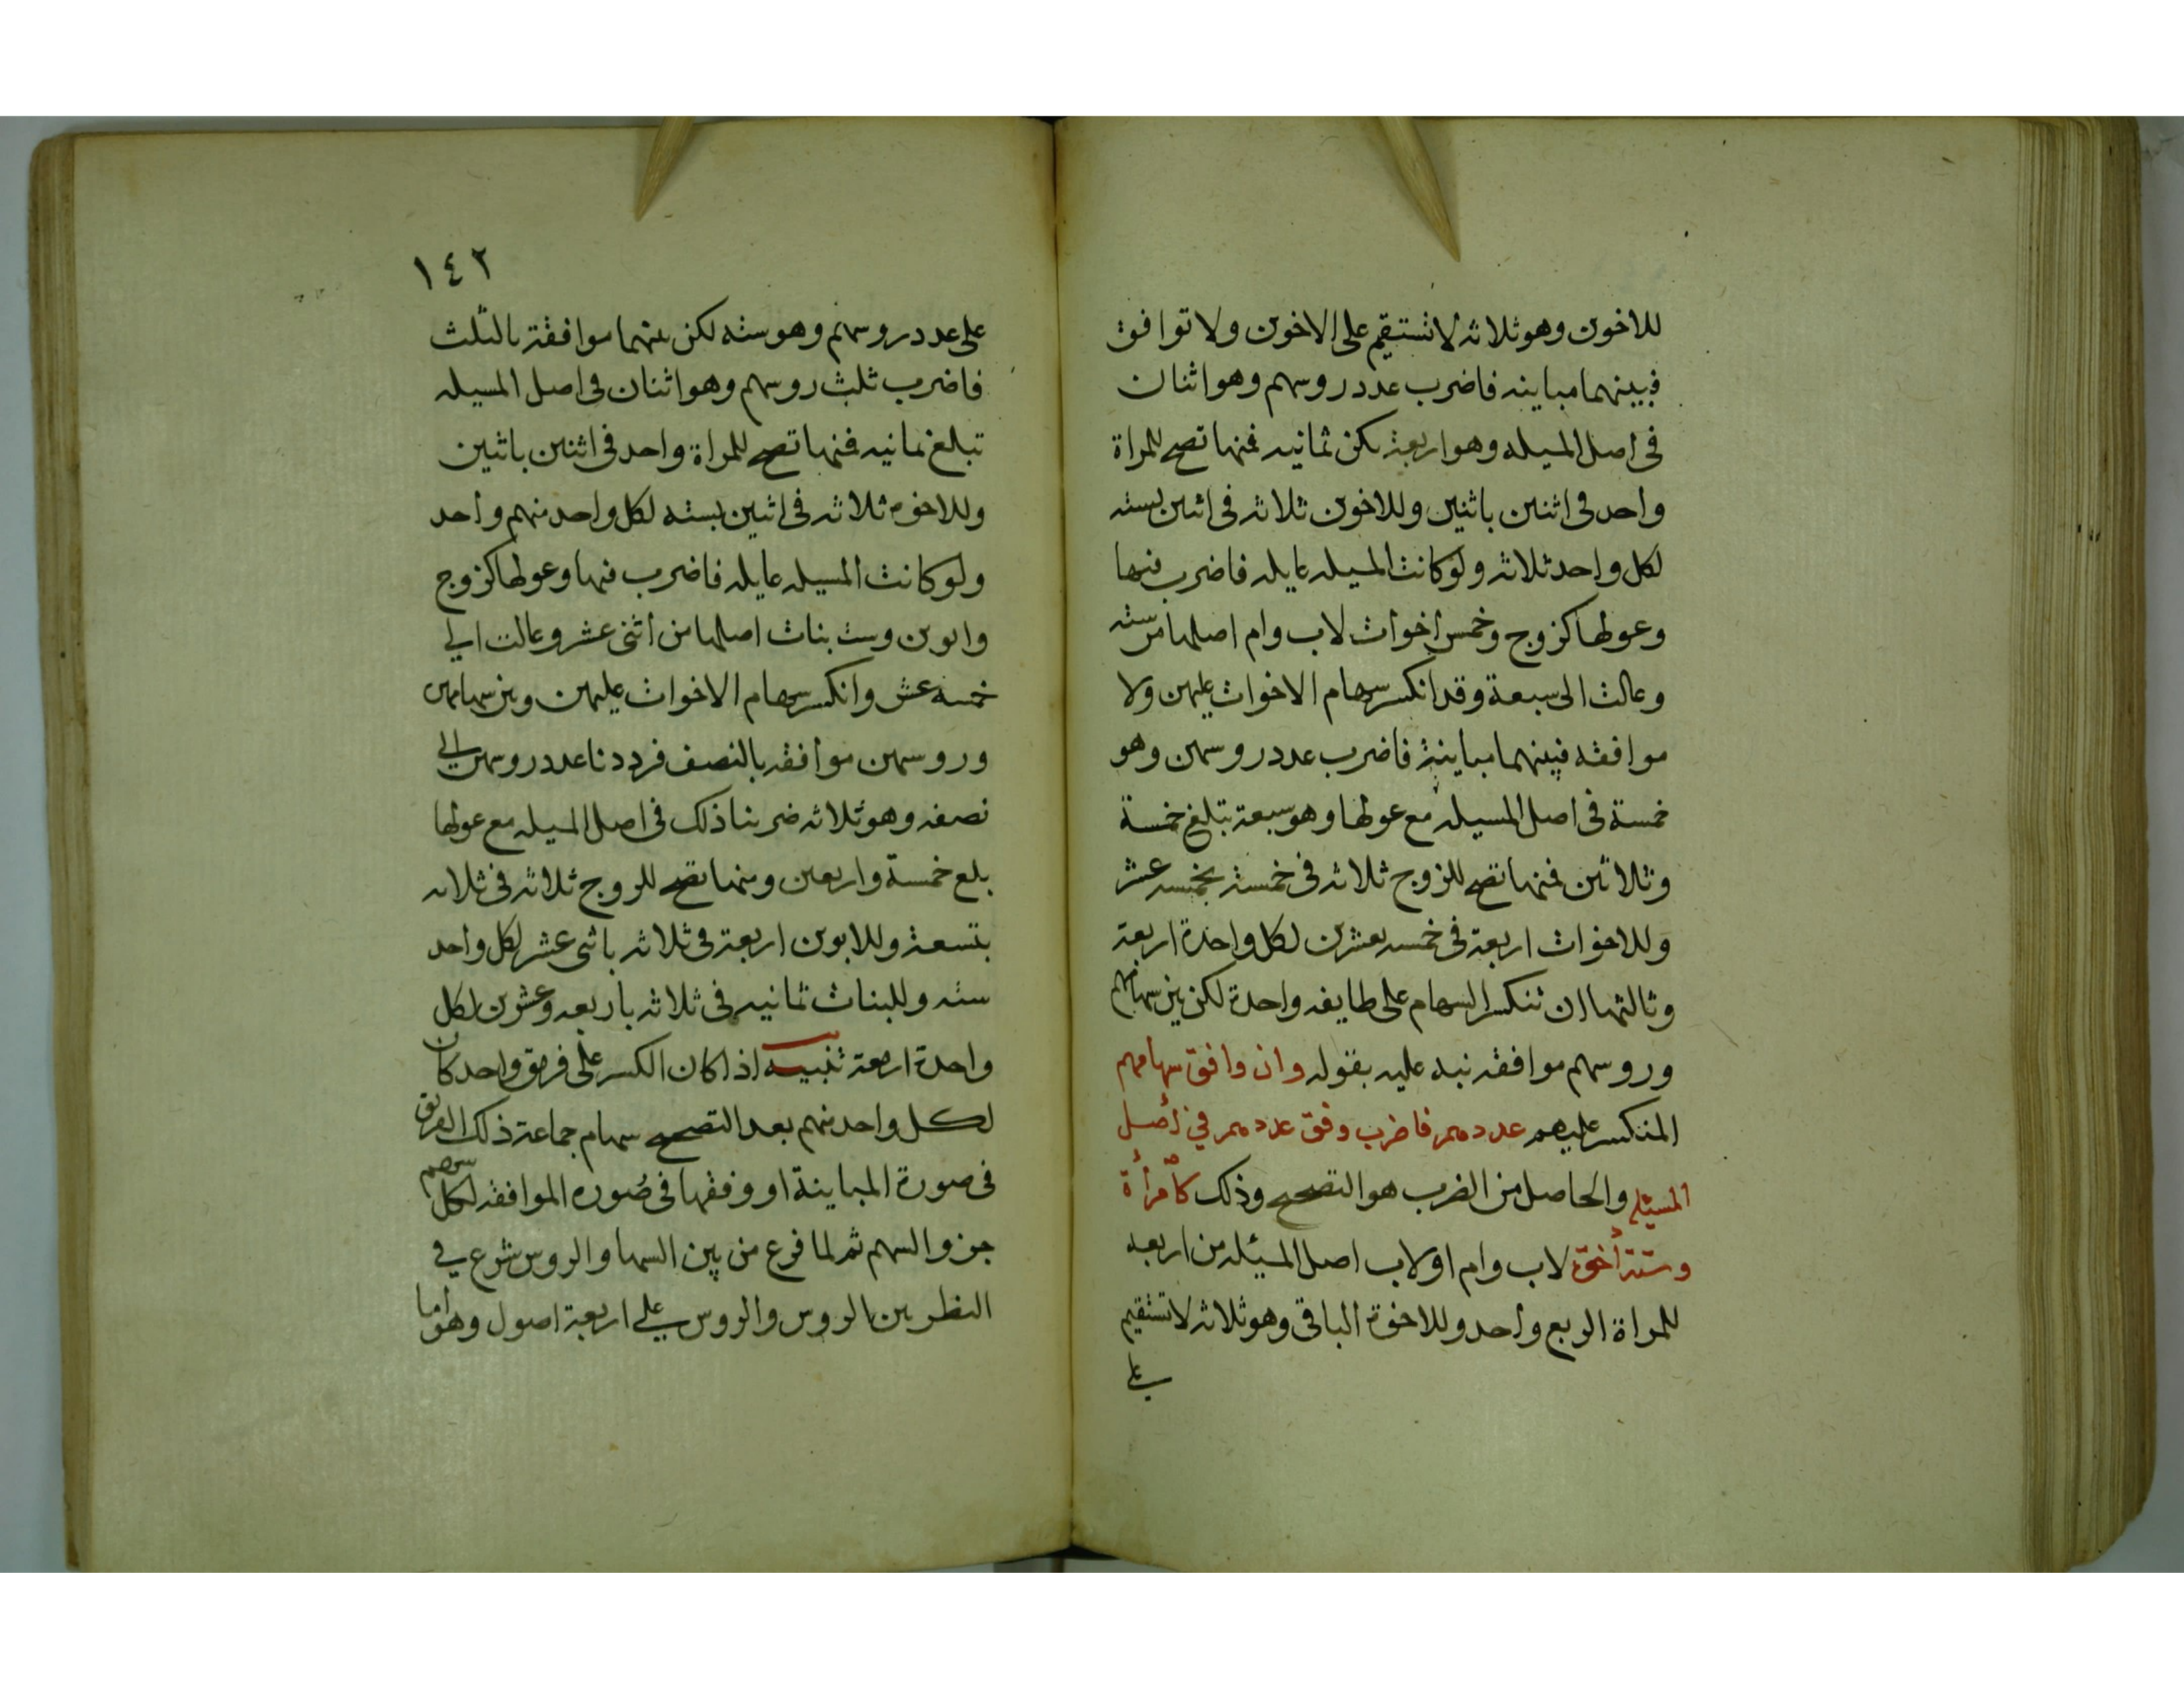 للاخوين وهو ثلاثه لا تستقيم على الاخوين ولا توافق
فبينهما مباينه فاضرب عدد روسهم وهو اثنان
فى اصل المسيله وهو اربعة يكن ثمانيه فمنها تصح للمراة
واحد فى اثنين باثنين وللاخوين ثلاثه فى اثنين بسته
لكل واحد ثلاثه ولو كانت المسيله عايله فاضرب فيها
وعولها كزوج وخمس اخوات لاب وام اصلها من سته
وعالت الى سبعة وقد انكسر سهام الاخوات عليهن ولا
موافقه فبينهما مباينة فاضرب عدد روسهن وهو
خمسة فى اصل المسيله مع عولها وهو سبعة تبلغ خمسة
وثلاثين فمنها تصح للزوج ثلاثه فى خمسة بخمسه عشر
وللاخوات اربعة فى خمسه بعشرين لكل واحدة اربعة
وثالثها ان تنكسر السهام على طايفه واحدة لكن بين سهامهم
وروسهم موافقه نبه عليه بقوله وان وافق سهامهم
المنكسر عليهم عددهم فاضرب وفق عددهم في اصل
المسيله والحاصل من الضرب هو التصحيح وذلك كامرأة
وستة أخوة لاب وام او لاب اصل المسيئله من اربعه
للمراة الربع واحد وللاخوة الباقى وهو ثلاثه لا تستقيم
على
١٤٢
على عدد روسهم وهو سته لكن بينهما موافقة بالثلث
فاضرب ثلث روسهم وهو اثنان فى اصل المسيله
تبلغ ثمانيه فمنها تصح للمراة واحد فى اثنين باثنين
وللاخوة ثلاثه فى اثنين بسته لكل واحد منهم واحد
ولو كانت المسيله عايله فاضرب فيها وعولها كزوج
وابوين وست بنات اصلها من اثنى عشر وعالت الي
خمسه عشر وانكسر سهام الاخوات عليهن وبين سهامهن
وروسهن موافقه بالنصف فرددنا عدد روسهن الي
نصفه وهو ثلاثه ضربنا ذلك فى اصل المسيله مع عولها
بلغ خمسة واربعين ومنها تصح للزوج ثلاثه فى ثلاثه
بتسعة وللابوين اربعة فى ثلاثه باثنى عشر لكل واحد
سته وللبنات ثمانيه فى ثلاثه باربعه وعشرين لكل
واحدة اربعة تنبيه اذا كان الكسر على فريق واحد كان
لكل واحد منهم بعد التصحيح سهام جماعة ذلك الفريق
فى صورة المباينة او وفقها فى صوره الموافقه لكل سهم
جزو السهم ثم لما فرغ من بين السهام والروس شرع في
النظر بين الروس والروس على اربعة اصول وهو اما